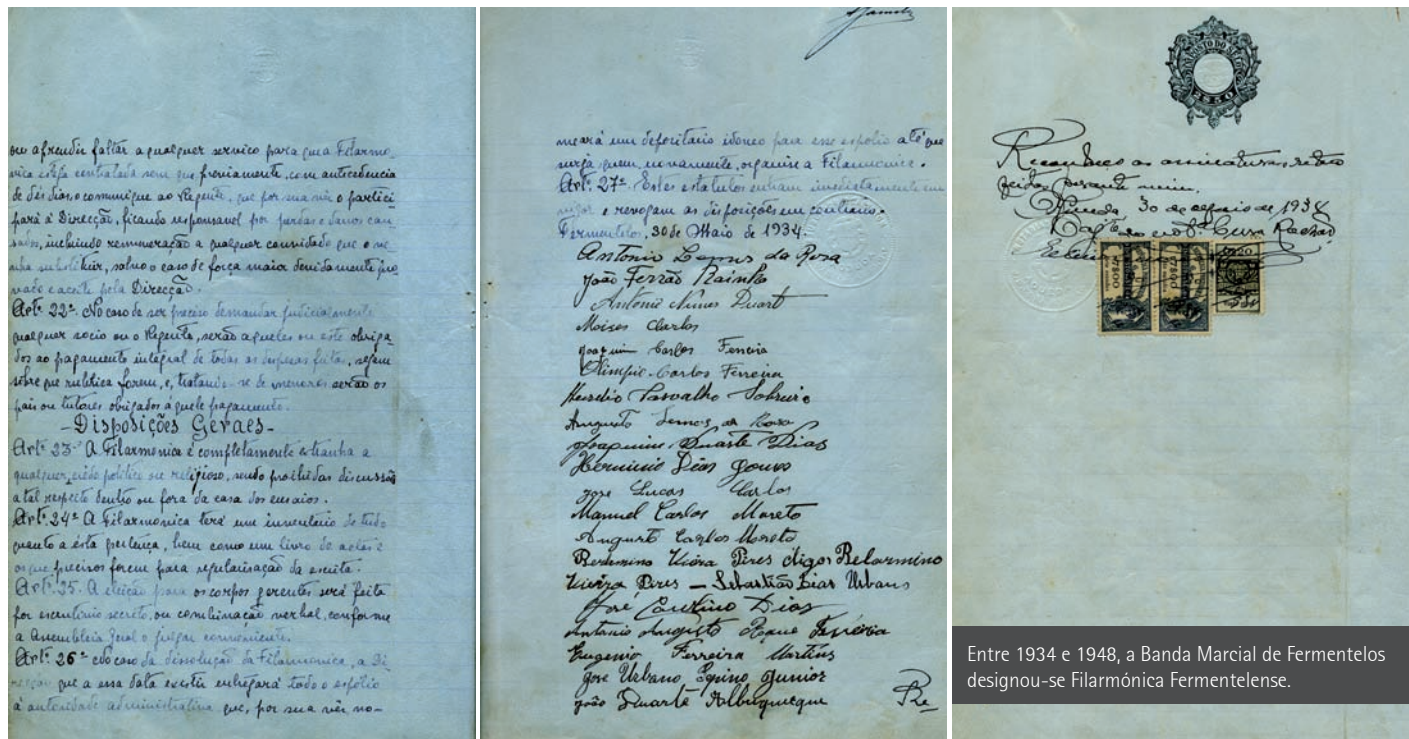 ou aprendiz faltar a qualquer serviço para que a Filarmo-
nica esteja contratada sem que previamente, com antecedencia
de dés dias, o communique ao Regente, que por sua vês o partici-
pará á Direcção, ficando responsavel por perdas e danos cau-
sados, incluindo remuneração a qualquer convidado que o ve-
nha substituir, salvo o caso de força maior devidamente pro-
vado e aceite pela Direcção.
Artº. 22º. No caso de ser preciso demandar judicialmente
qualquer socio ou o Regente, serão aqueles ou este obriga-
dos ao pagamento integral de todas as despesas feitas, sejam
sôbre que rubrica forem, e, tratando-se de menores serão os
pais ou tutores obrigados áquele pagamento.
-Disposições Geraes-
Artº. 23º A Filarmonica é completamente estranha a
qualquer credo politico ou religioso, sendo prohibidas discussão
a tal respeito dentro ou fora da casa dos ensaios.
Artº. 24º A Filarmonica terá um inventário de tudo
quanto a ésta pertença, bem como um livro de actas e
os que precisos forem para regularisação da escrita.
Artº. 25º. A eleição para os corpos gerentes será feita
por escrutinio secreto, ou combinação verbal, conforme
a Assembleia Geral o julgar conveniente.
Artº. 26º No caso da dissolução da Filarmonica, a Di-
recção que a essa data existir entregará todo o espólio
á autoridade administrativa que, por sua vês no-
meará um depositario idoneo para esse espolio até que
surja quem, novamente, organise a Filarmonica.
Artº. 27º. Estes estatutos entram imediatamente em
vigor e revogam as disposições em contrário.
Fermentelos, 30 de Maio de 1934.
Antonio Lemos da Rosa
João Ferrão Rainho
Antonio Nunes Duarte
Moises Carlos
Joaquim Carlos Ferreira
Olimpio Carlos Ferreira
Carvalho Sobreiro
Augusto Lemos da Rosa
Joaquim Duarte Dias
Herminio Dias Gomes
José Lucas Carlos
Manuel Carlos Moreto
Augusto Carlos Moreto
Vieira Pires digo Belarmino
Vieira Pires — Sebastião Dias Urbano
José Dias
Antonio Augusto Ferreira
Eugenio Ferreira Martins
José Urbano Junior
João Duarte Albuquerque
Re-
2$50
Reconheço as assinaturas retro
feitas perante mim.
30 de maio de 1934
Entre 1934 e 1948, a Banda Marcial de Fermentelos
designou-se Filarmónica Fermentelense.